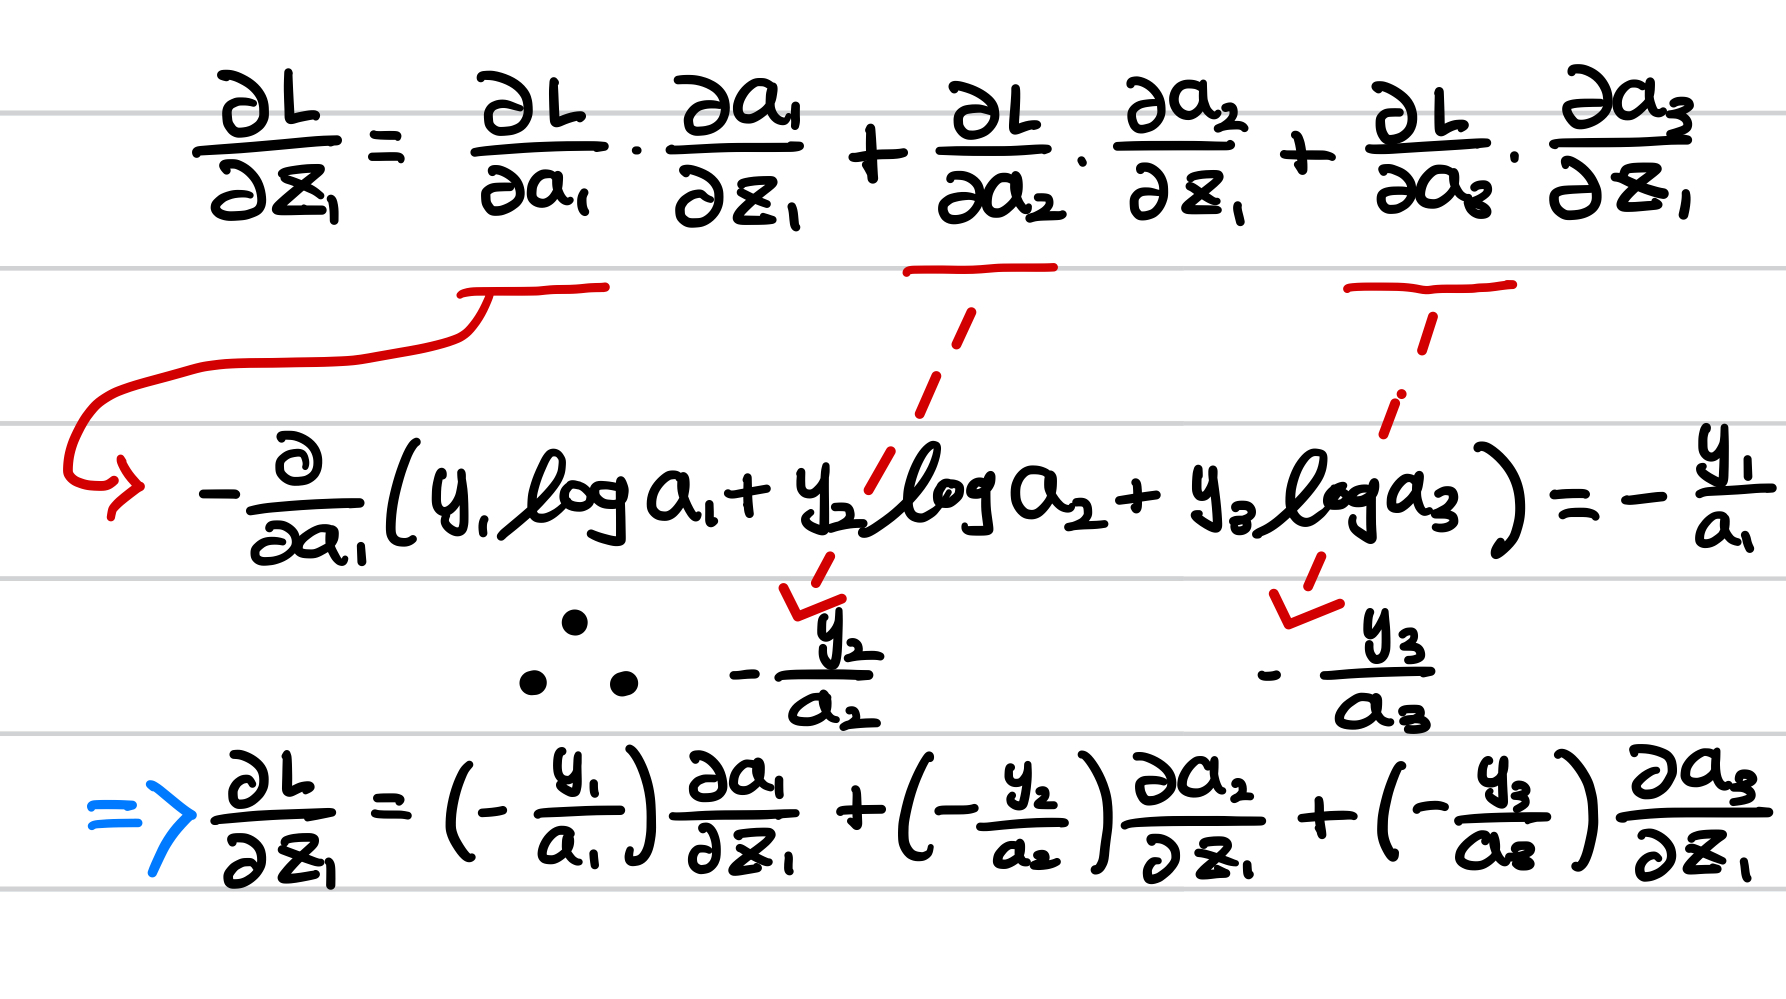 ∂L/∂z₁ = ∂L/∂a₁ · ∂a₁/∂z₁ + ∂L/∂a₂ · ∂a₂/∂z₁ + ∂L/∂a₃ · ∂a₃/∂z₁
-∂/∂a₁ (y₁ log a₁ + y₂ log a₂ + y₃ log a₃) = -y₁/a₁
∴ -y₂/a₂ -y₃/a₃
=> ∂L/∂z₁ = (-y₁/a₁) ∂a₁/∂z₁ + (-y₂/a₂) ∂a₂/∂z₁ + (-y₃/a₃) ∂a₃/∂z₁